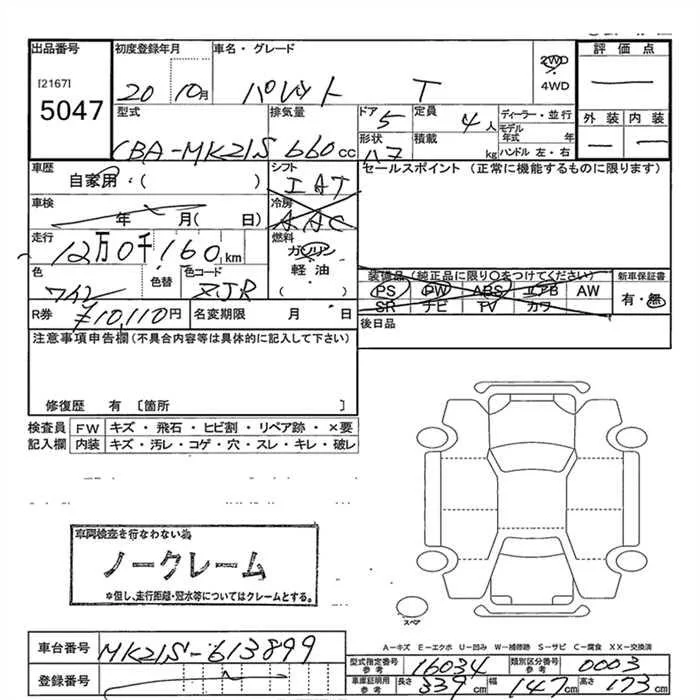 出品番号 初度登録年月 車名・グレード 2WD 4WD 評価点
[2167]
5047
20 10月 パレット T
型式 排気量 ドア 定員 ディーラー・並行 外装 内装
CBA-MK21S 660cc 5 4人 モデル年式 年
形状 積載 kg ハンドル 左・右
ハ7
車歴 自家用・( ) シフト IAT セールスポイント (正常に機能するものに限ります)
車検 年 月( 日) 冷房 AAC
走行 12万0千160km 燃料 ガソリン 軽油 ( )
色 ワイン 色替 色コード ZJR
装備品(純正品に限り○をつけてください) 新車保証書
PS PW ABS エアB AW 有・無
SR ナビ TV カワ
R券 ¥10,110円 名変期限 月 日 後日品
注意事項申告欄(不具合内容等は具体的に記入して下さい)
修復歴 有 [箇所 ]
検査員 FW キズ・飛石・ヒビ割・リペア跡・×要
記入欄 内装 キズ・汚レ・コゲ・穴・スレ・キレ・破レ
車両検査を行なわない為
ノークレーム
*但し、走行距離・冠水等についてはクレームとする。
スペア
A－キズ E－エクボ U－凹み W－補修跡 S－サビ C－腐食 XX－交換済
車台番号 MK21S-613899
型式指定番号 参考 16034 類別区分番号 参考 0003
登録番号
車庫証明用 参考 長さ 339cm 幅 147cm 高さ 173cm